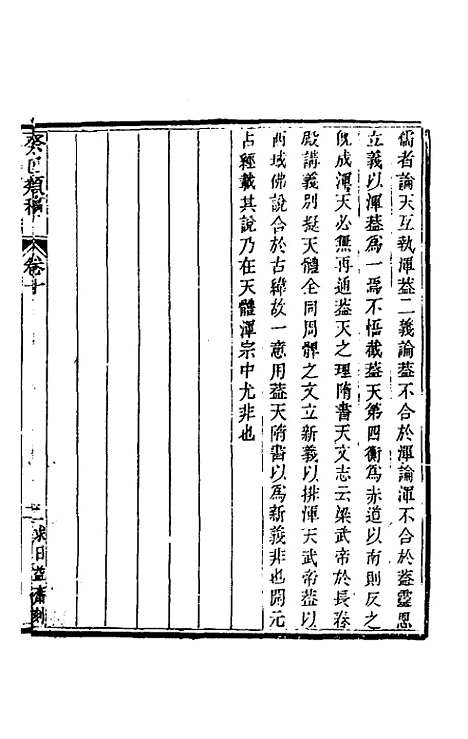 儒者論天互執渾葢二義論葢不合於渾論渾不合於葢靈恩
立義以渾葢爲一焉不悟截葢天第四衡爲赤道以南則反之
旣成渾天必無再通葢天之理隋書天文志云梁武帝於長春
殿講義別擬天體全同周髀之文立新義以排渾天武帝葢以
西域佛說合於古緯故一意用葢天隋書以爲新義非也開元
占經載其說乃在天體渾宗中尤非也
癸巳類稿
卷十
求日益齋刻